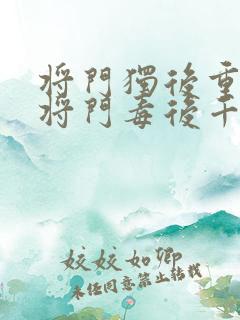 將門獨後重
將門毒後千
姣姣如卿
未任同意禁止转载